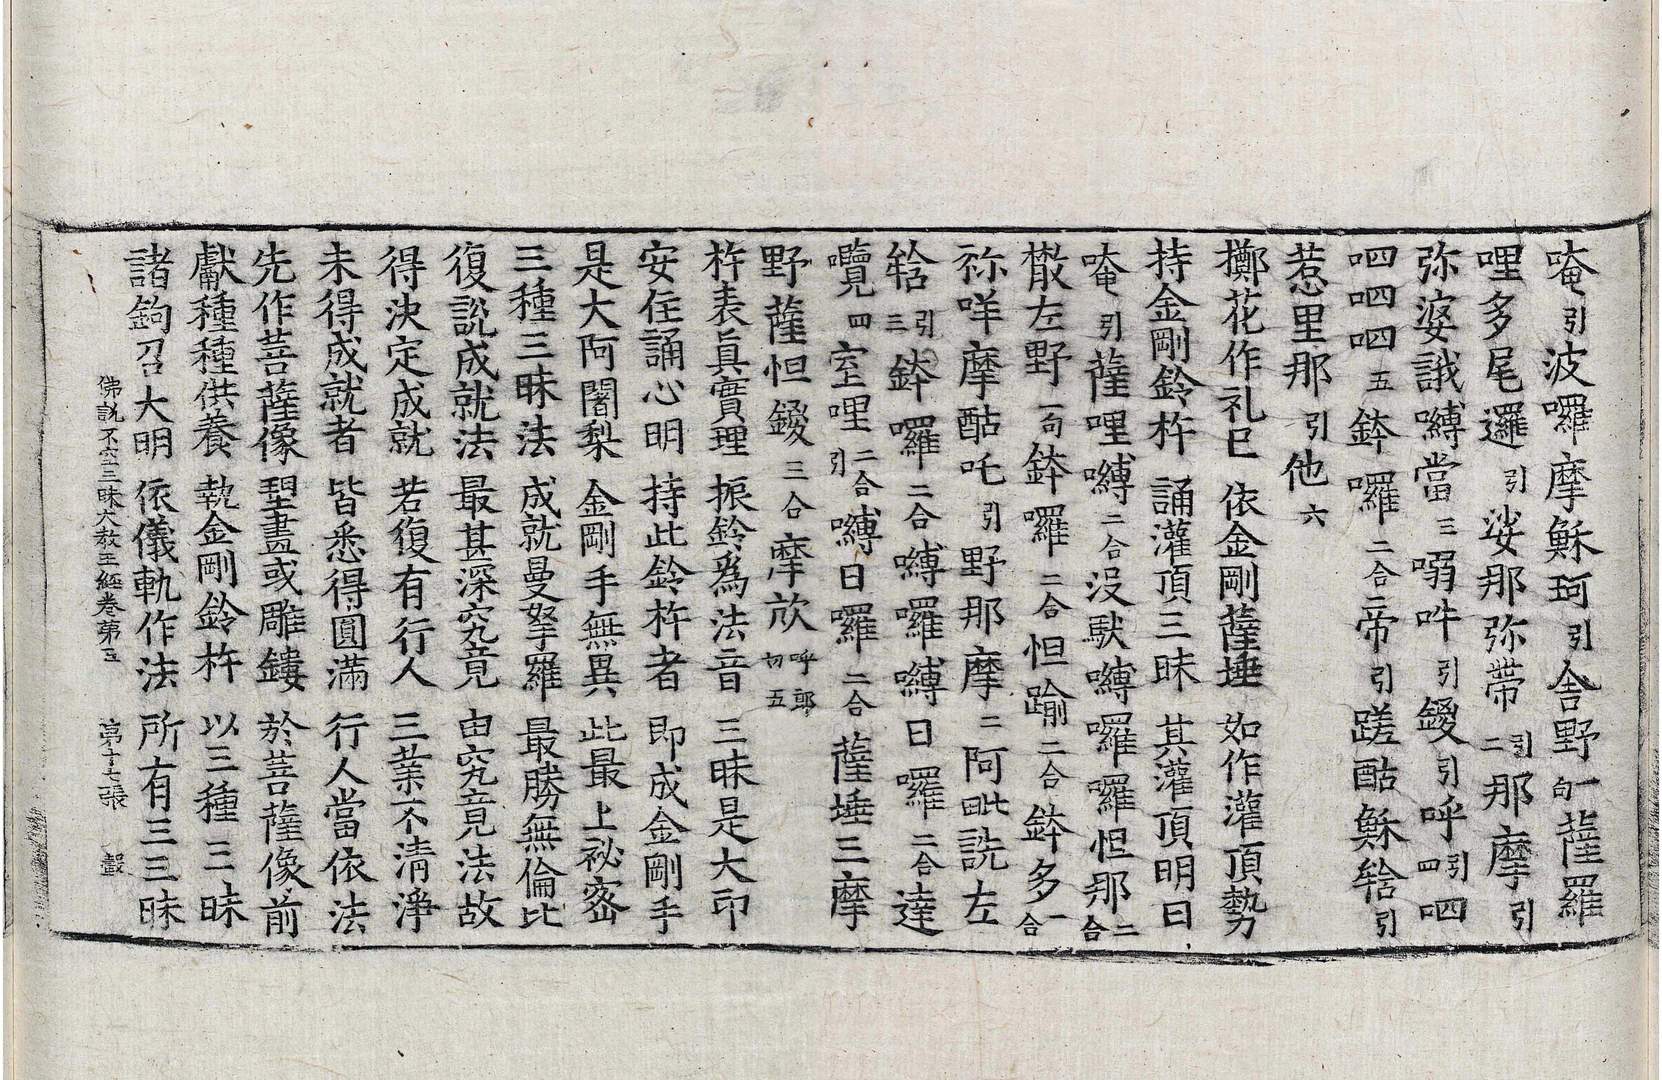 唵引波囉摩穌珂引舍野一句薩羅
哩多尾邏引娑那弥帶引二那摩引
弥婆誐嚩當三嗢吽引鍐引呼引四呬
呬呬呬五鉢囉二合帝引蹉酤穌㸳引
惹里那引他六
擲花作礼巳　依金剛薩埵　如作灌頂勢
持金剛鈴杵　誦灌頂三昧　其灌頂明曰
唵引薩哩嚩二合没馱嚩囉囉怛那二合
㯿左野一句鉢囉二合怛踰二合鉢多一合
祢咩摩酤吒引野那摩二阿毗詵左
㸳引三鉢囉二合嚩囉嚩日囉二合達
囕四室哩二合引嚩日囉二合薩埵三摩
野薩怛鍐三合摩㰠呼郎切五
杵表眞實理　振鈴為法音　三昧是大印
安住誦心明　持此鈴杵者　即成金剛手
是大阿闍梨　金剛手無異　此最上祕密
三種三昧法　成就曼拏羅　最勝無倫比
復説成就法　最甚深究竟　由究竟法故
得決定成就　若復有行人　三業不清淨
未得成就者　皆悉得圓滿　行人當依法
先作菩薩像　塑畫或雕鏤　於菩薩像前
獻種種供養　執金剛鈴杵　以三種三昧
諸鉤召大明　依儀軌作法　所有三三昧
佛説不空三昧大教王經卷第五　第十七張　縠